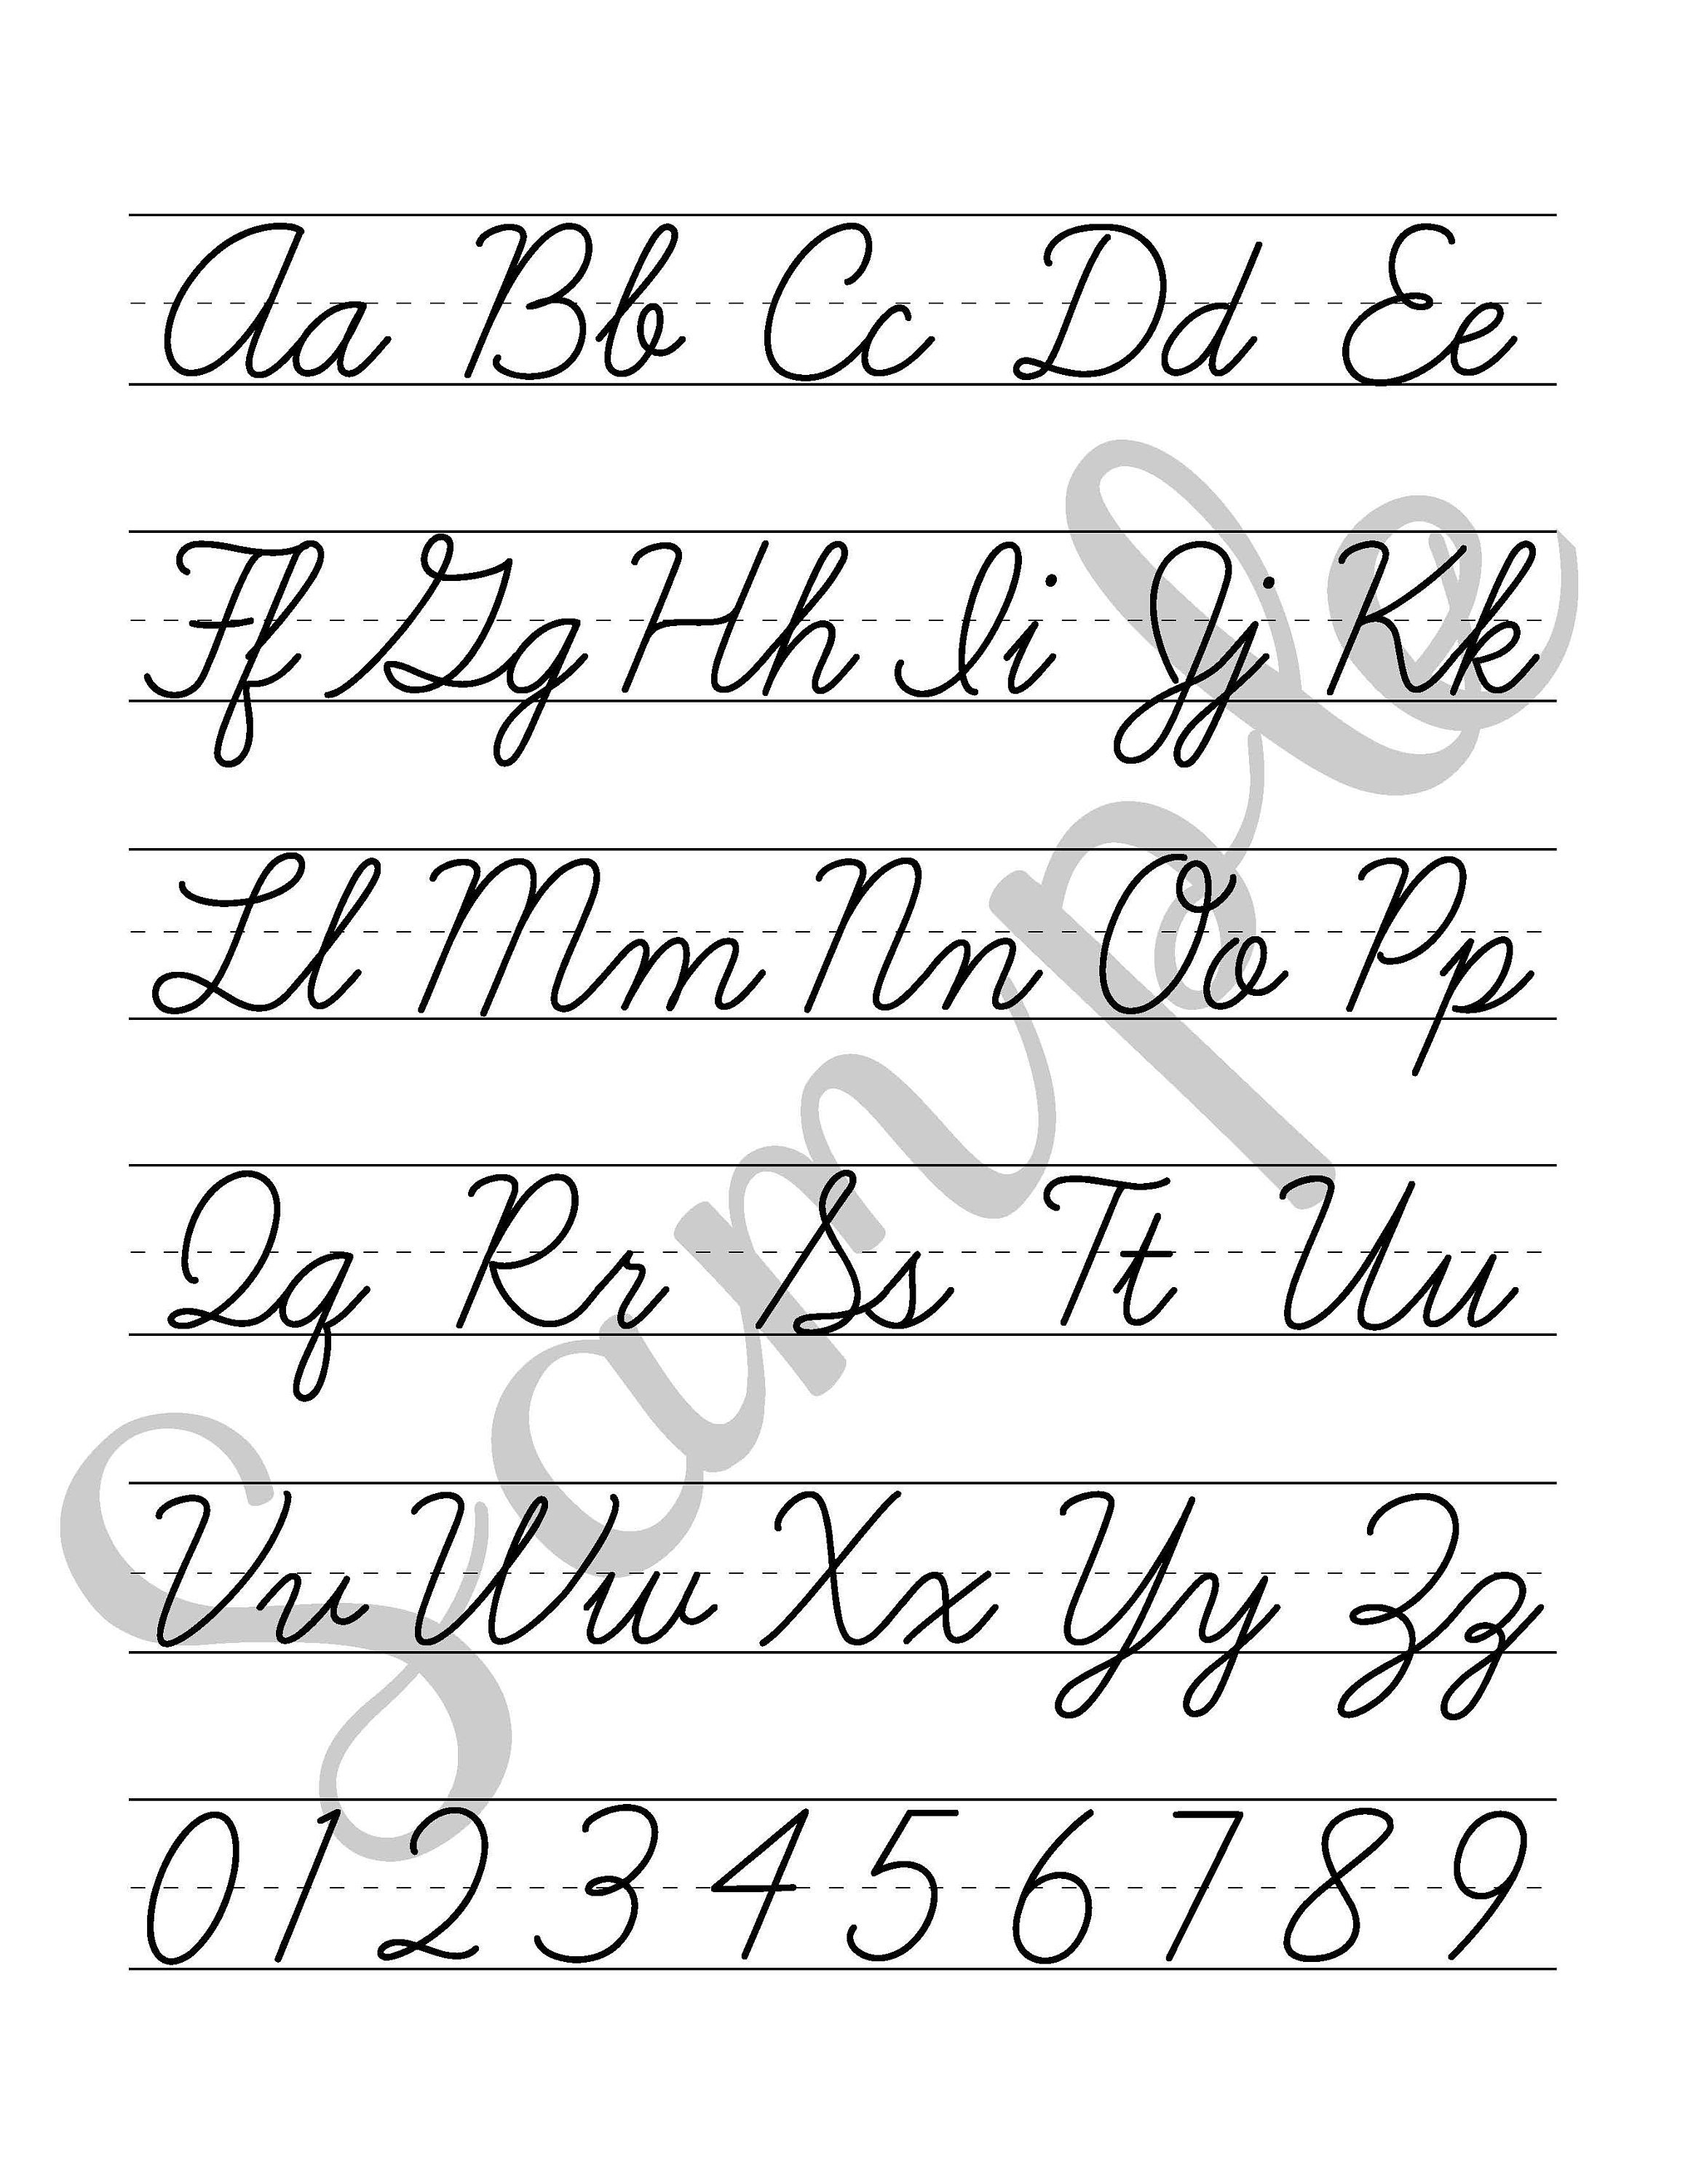 Aa Bb Cc Dd Ee
Ff Gg Hh Ii Jj Kk
Ll Mm Nn Oo Pp
Qq Rr Ss Tt Uu
Vv Ww Xx Yy Zz
0 1 2 3 4 5 6 7 8 9
Sample